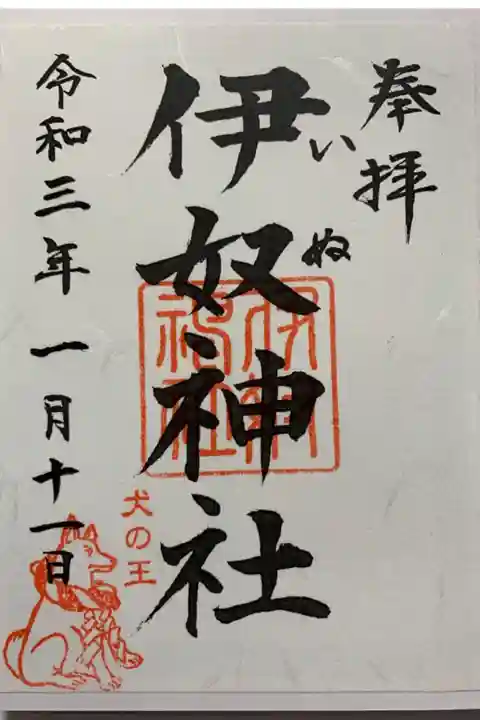 奉拝
いぬ
伊奴神社
犬の王
令和三年一月十一日